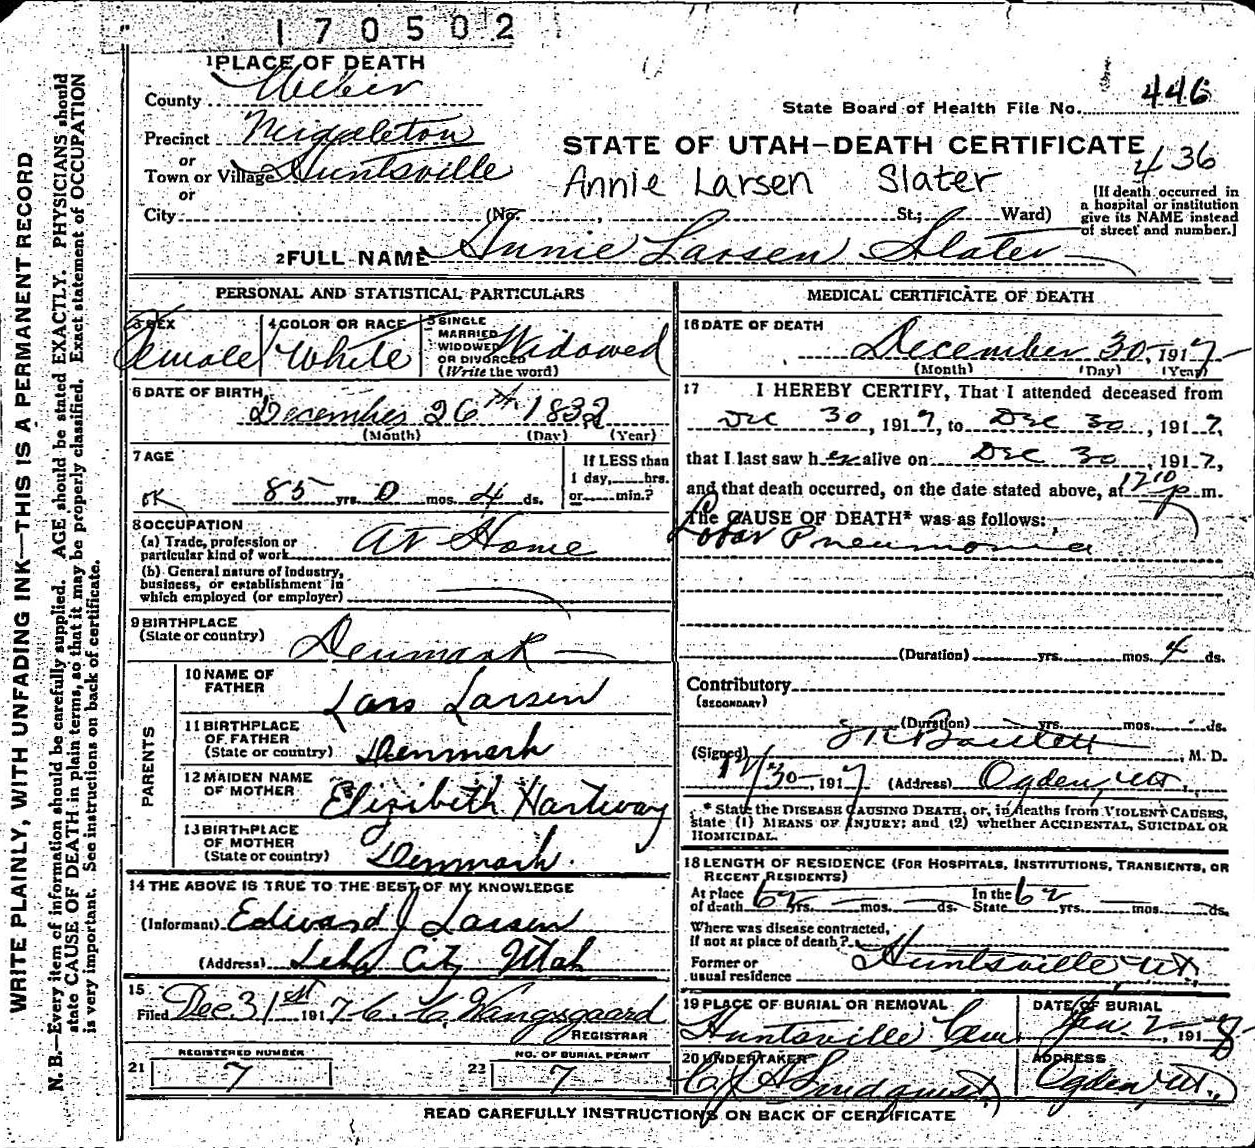 170502
1 PLACE OF DEATH
County Weber
Precinct Middleton
or
Town or Village Huntsville
or
City (No. , St.; Ward)
State Board of Health File No. 446
STATE OF UTAH—DEATH CERTIFICATE
436
Annie Larsen Slater
[If death occurred in a hospital or institution give its NAME instead of street and number.]
2 FULL NAME Annie Larsen Slater
PERSONAL AND STATISTICAL PARTICULARS
3 SEX Female
4 COLOR OR RACE White
5 SINGLE MARRIED WIDOWED OR DIVORCED (Write the word) Widowed
6 DATE OF BIRTH December 26th 1832
(Month) (Day) (Year)
7 AGE
OK 85 yrs. 0 mos. 4 ds.
If LESS than 1 day, hrs. or min.?
8 OCCUPATION
(a) Trade, profession or particular kind of work At Home
(b) General nature of industry, business, or establishment in which employed (or employer)
9 BIRTHPLACE
(State or country) Denmark
PARENTS
10 NAME OF FATHER Lars Larsen
11 BIRTHPLACE OF FATHER (State or country) Denmark
12 MAIDEN NAME OF MOTHER Elizibeth Hartway
13 BIRTHPLACE OF MOTHER (State or country) Denmark.
14 THE ABOVE IS TRUE TO THE BEST OF MY KNOWLEDGE
(Informant) Edward J Larsen
(Address) Lehi City Utah
15
Filed Dec 31st 1917 C. C. Wangsgaard
REGISTRAR
REGISTERED NUMBER
21 7
NO. OF BURIAL PERMIT
22 7
MEDICAL CERTIFICATE OF DEATH
16 DATE OF DEATH
December 30, 1917
(Month) (Day) (Year)
17 I HEREBY CERTIFY, That I attended deceased from
Dec 30, 1917, to Dec 30, 1917,
that I last saw her alive on Dec 30, 1917,
and that death occurred, on the date stated above, at 1210 p m.
The CAUSE OF DEATH* was as follows:
Lobar Pneumonia
(Duration) yrs. mos. 4 ds.
Contributory
(SECONDARY)
(Duration) yrs. mos. ds.
(Signed) Bartlett, M. D.
12/30, 1917 (Address) Ogden, Ut.
* State the DISEASE CAUSING DEATH, or, in deaths from VIOLENT CAUSES, state (1) MEANS OF INJURY; and (2) whether ACCIDENTAL, SUICIDAL OR HOMICIDAL.
18 LENGTH OF RESIDENCE (FOR HOSPITALS, INSTITUTIONS, TRANSIENTS, OR RECENT RESIDENTS)
At place of death 62 yrs. mos. ds. In the State 62 yrs. mos. ds.
Where was disease contracted, if not at place of death?
Former or usual residence Huntsville Ut.
19 PLACE OF BURIAL OR REMOVAL
Huntsville Cem
DATE OF BURIAL
Jan. 2, 1918
20 UNDERTAKER
Lindquist
ADDRESS
Ogden, Ut.
READ CAREFULLY INSTRUCTIONS ON BACK OF CERTIFICATE
WRITE PLAINLY, WITH UNFADING INK—THIS IS A PERMANENT RECORD
N. B.—Every item of information should be carefully supplied. AGE should be stated EXACTLY. PHYSICIANS should
state CAUSE OF DEATH in plain terms, so that it may be properly classified. Exact statement of OCCUPATION
is very important. See instructions on back of certificate.